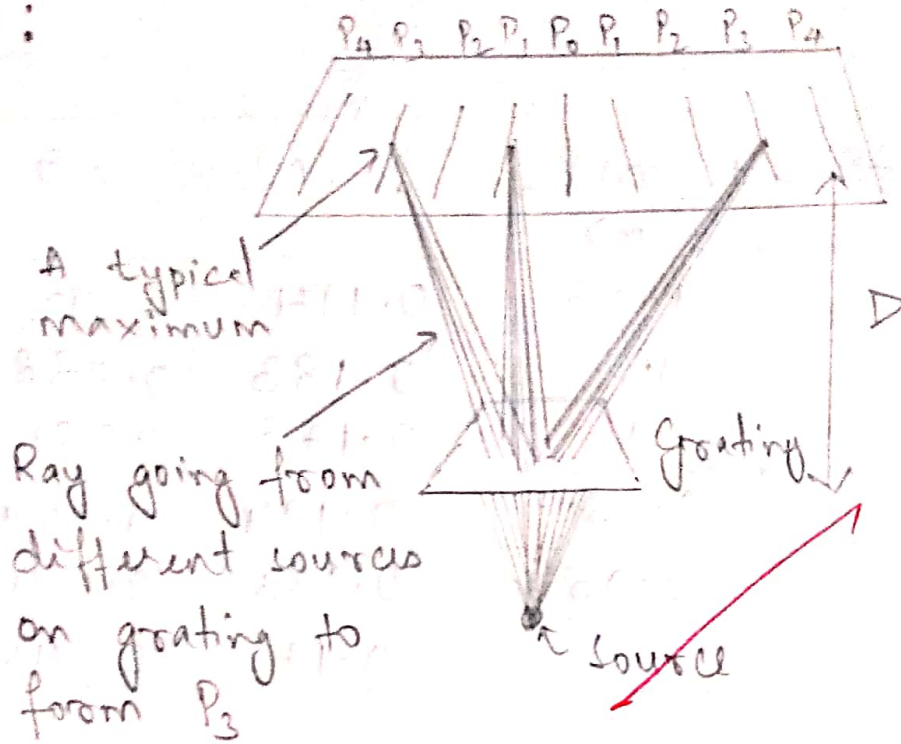 :
P4 P3 P2 P1 P0 P1 P2 P3 P4
A typical
maximum
D
Ray going from
different sources
on grating to
form P3
Grating
Source